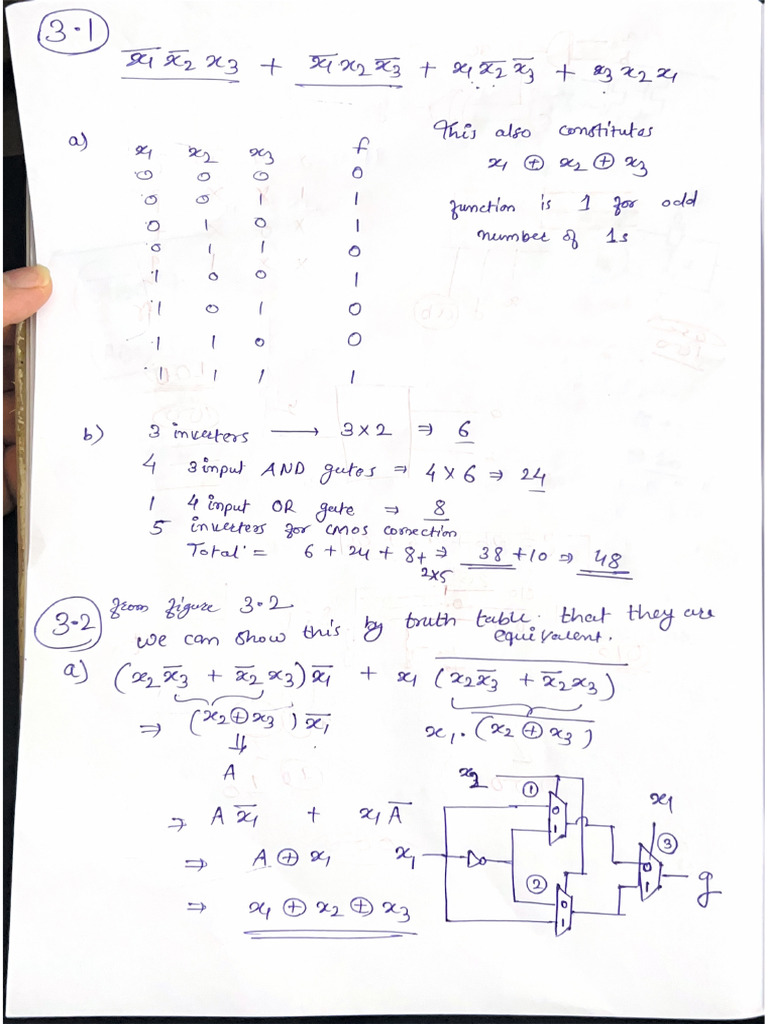 3.1
x̅1 x̅2 x3 + x̅1 x2 x̅3 + x1 x̅2 x̅3 + x3 x2 x1
a)
x1 x2 x3 f
0 0 0 0
0 0 1 1
0 1 0 1
0 1 1 0
1 0 0 1
1 0 1 0
1 1 0 0
1 1 1 1
This also constitutes
x1 ⊕ x2 ⊕ x3
function is 1 for odd
number of 1s
b) 3 inverters ⟶ 3×2 ⇒ 6
4 3 input AND gates ⇒ 4×6 ⇒ 24
1 4 input OR gate ⇒ 8
5 inverters for CMOS correction
Total = 6 + 24 + 8 + ⇒ 38 + 10 ⇒ 48
2×5
3.2 from figure 3.2
we can show this by truth table. that they are
equivalent.
a) (x2 x̅3 + x̅2 x3) x̅1 + x1 (x2 x̅3 + x̅2 x3)̅
⇒ (x2 ⊕ x3) x̅1 x1 . (x2 ⊕ x3)̅
⇓
A
⇒ A x̅1 + x1 A̅
⇒ A ⊕ x1
⇒ x1 ⊕ x2 ⊕ x3
x2
1
0
1
x1
x1
3
0
1
g
2
0
1